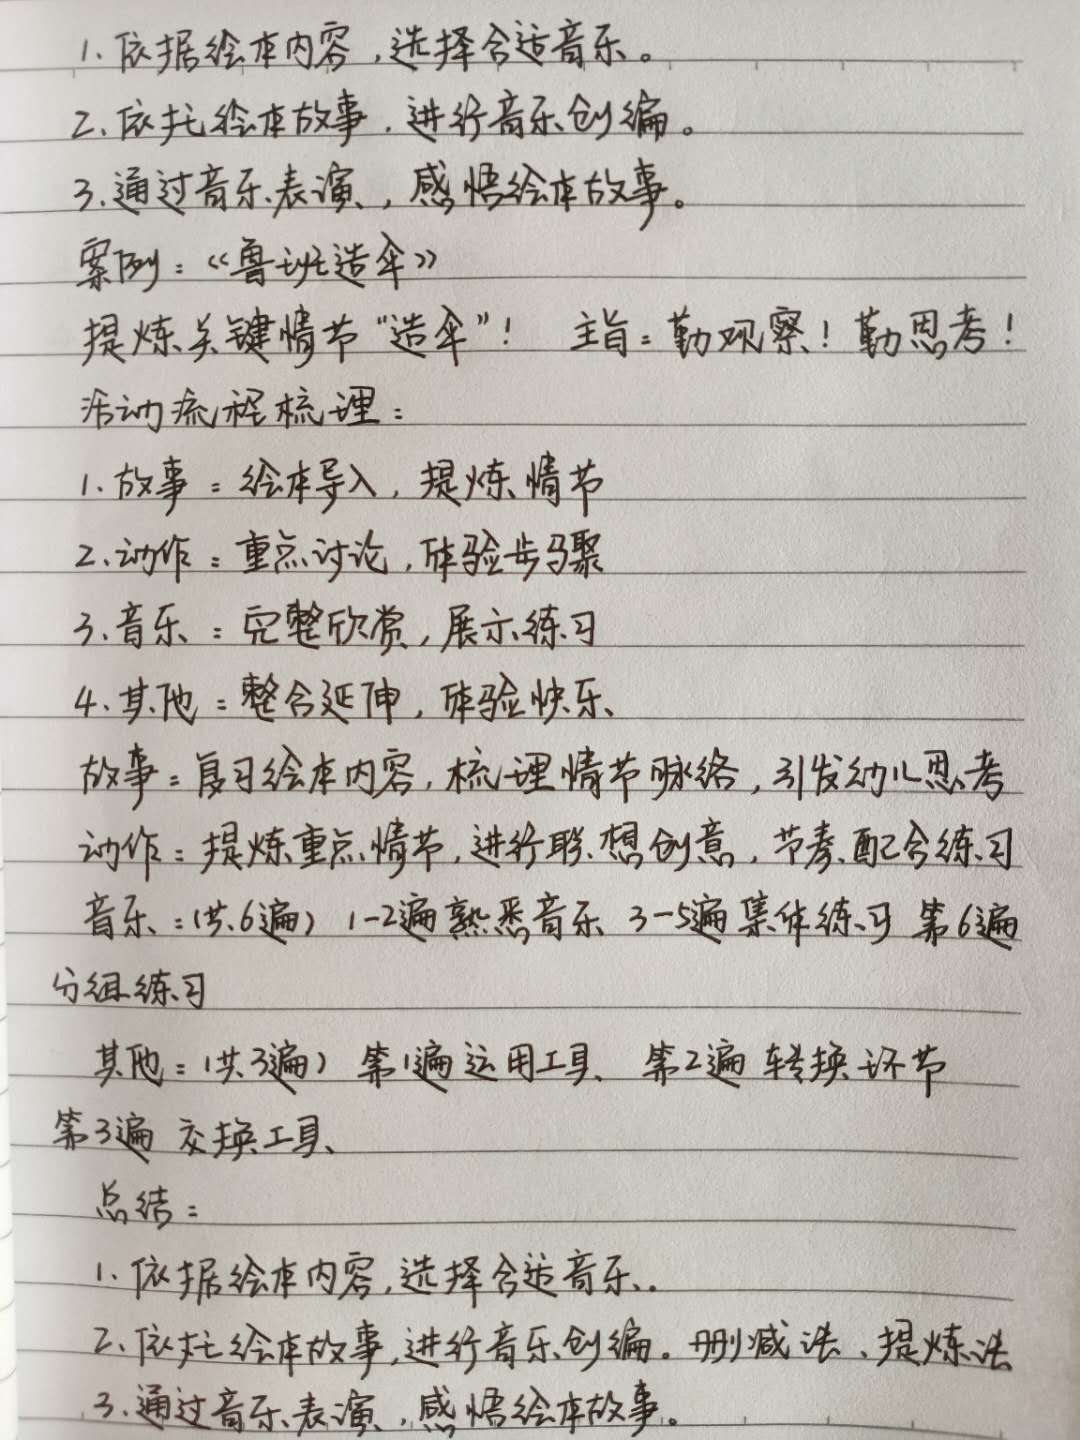 1.依据绘本内容,选择合适音乐。
2.依托绘本故事,进行音乐创编。
3.通过音乐表演,感悟绘本故事。
案例:《鲁班造伞》
提炼关键情节“造伞”! 主旨:勤观察!勤思考!
活动流程梳理:
1.故事:绘本导入,提炼情节
2.动作:重点讨论,体验步骤
3.音乐:完整欣赏,展示练习
4.其他:整合延伸,体验快乐
故事:复习绘本内容,梳理情节脉络,引发幼儿思考
动作:提炼重点情节,进行联想创意,节奏配合练习
音乐:(共6遍) 1-2遍熟悉音乐 3-5遍集体练习 第6遍
分组练习
其他:(共3遍) 第1遍运用工具 第2遍转换环节
第3遍 交换工具
总结:
1.依据绘本内容,选择合适音乐.
2.依托绘本故事,进行音乐创编。删减法、提炼法
3.通过音乐表演,感悟绘本故事。